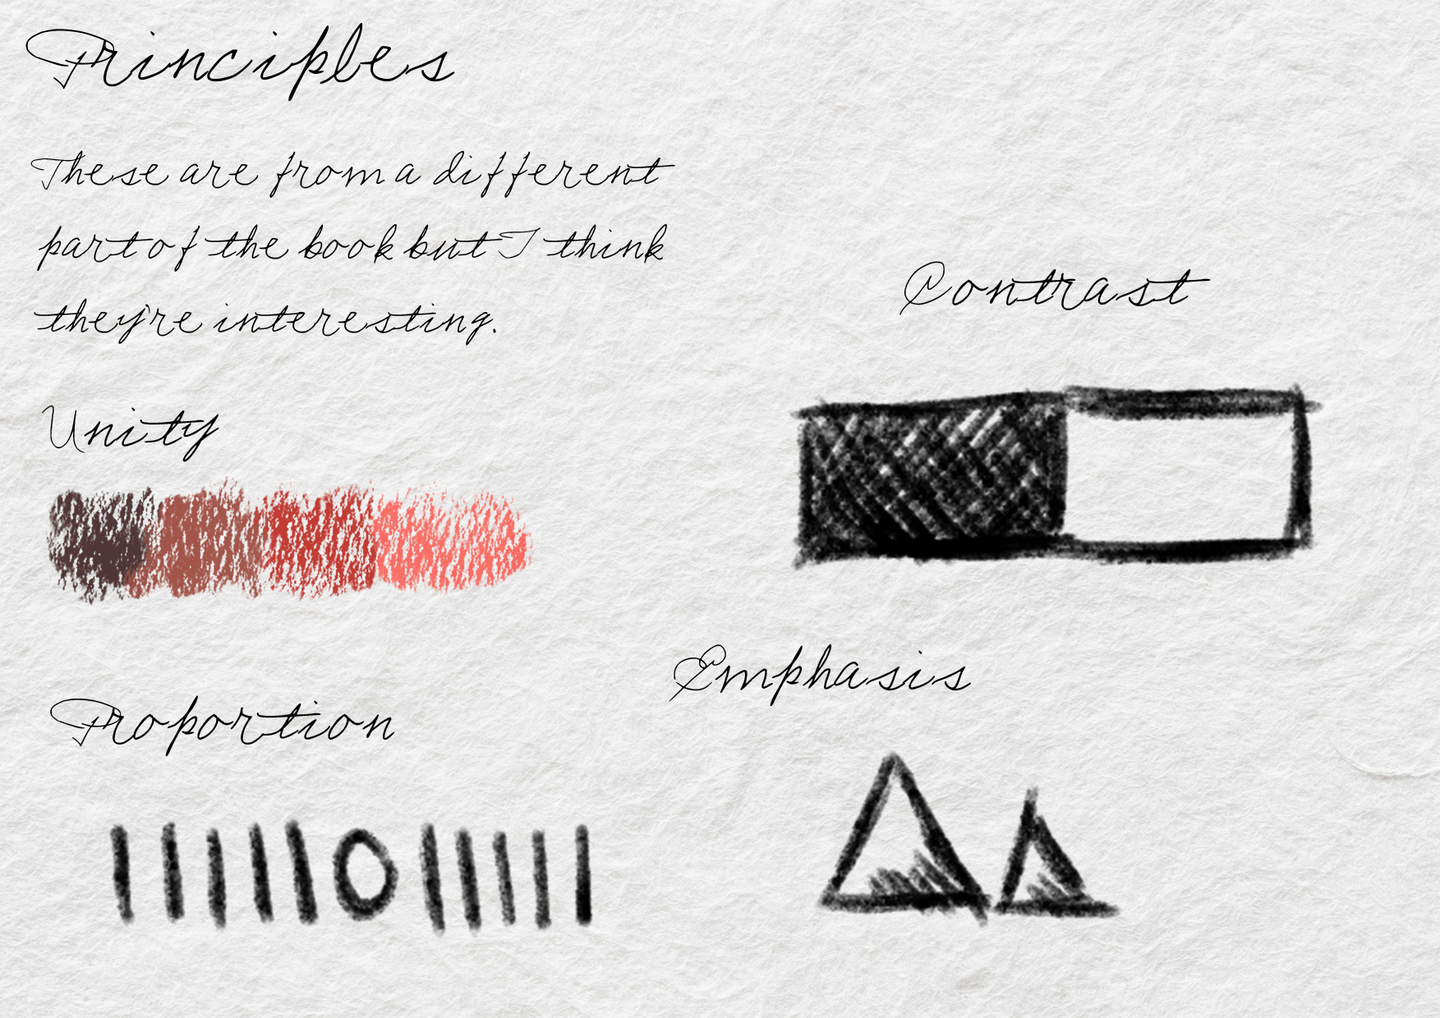 Principles
These are from a different
part of the book but I think
they're interesting.
Unity
Contrast
Emphasis
Proportion